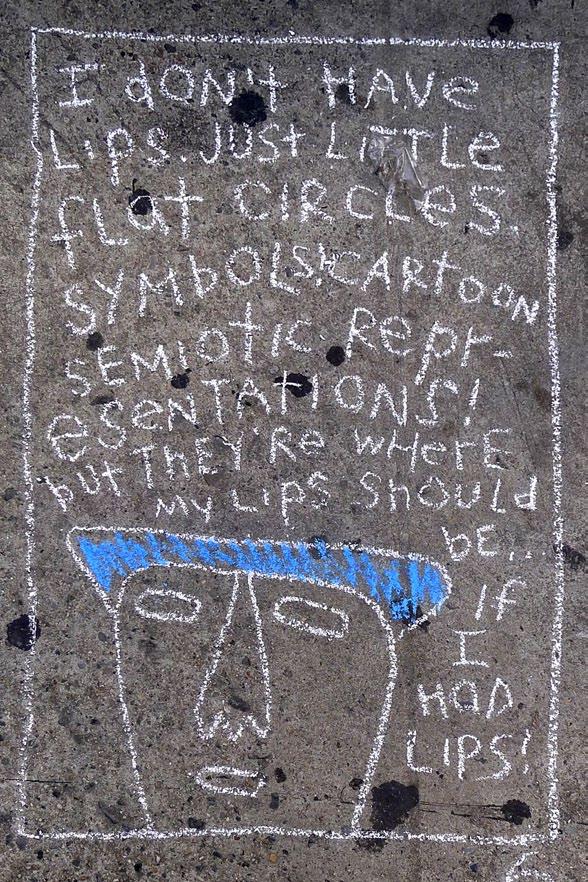 I dON't HAVe
LipS. JUSt LITTLe
fLat CIRCLeS.
SYMbOLS! CARtOON
SEMiOtIC Repr-
eSeNTATIONS!
but THEY'Re wHerE
My LipS ShoULd
bE...
If
I
HAD
LIPS!